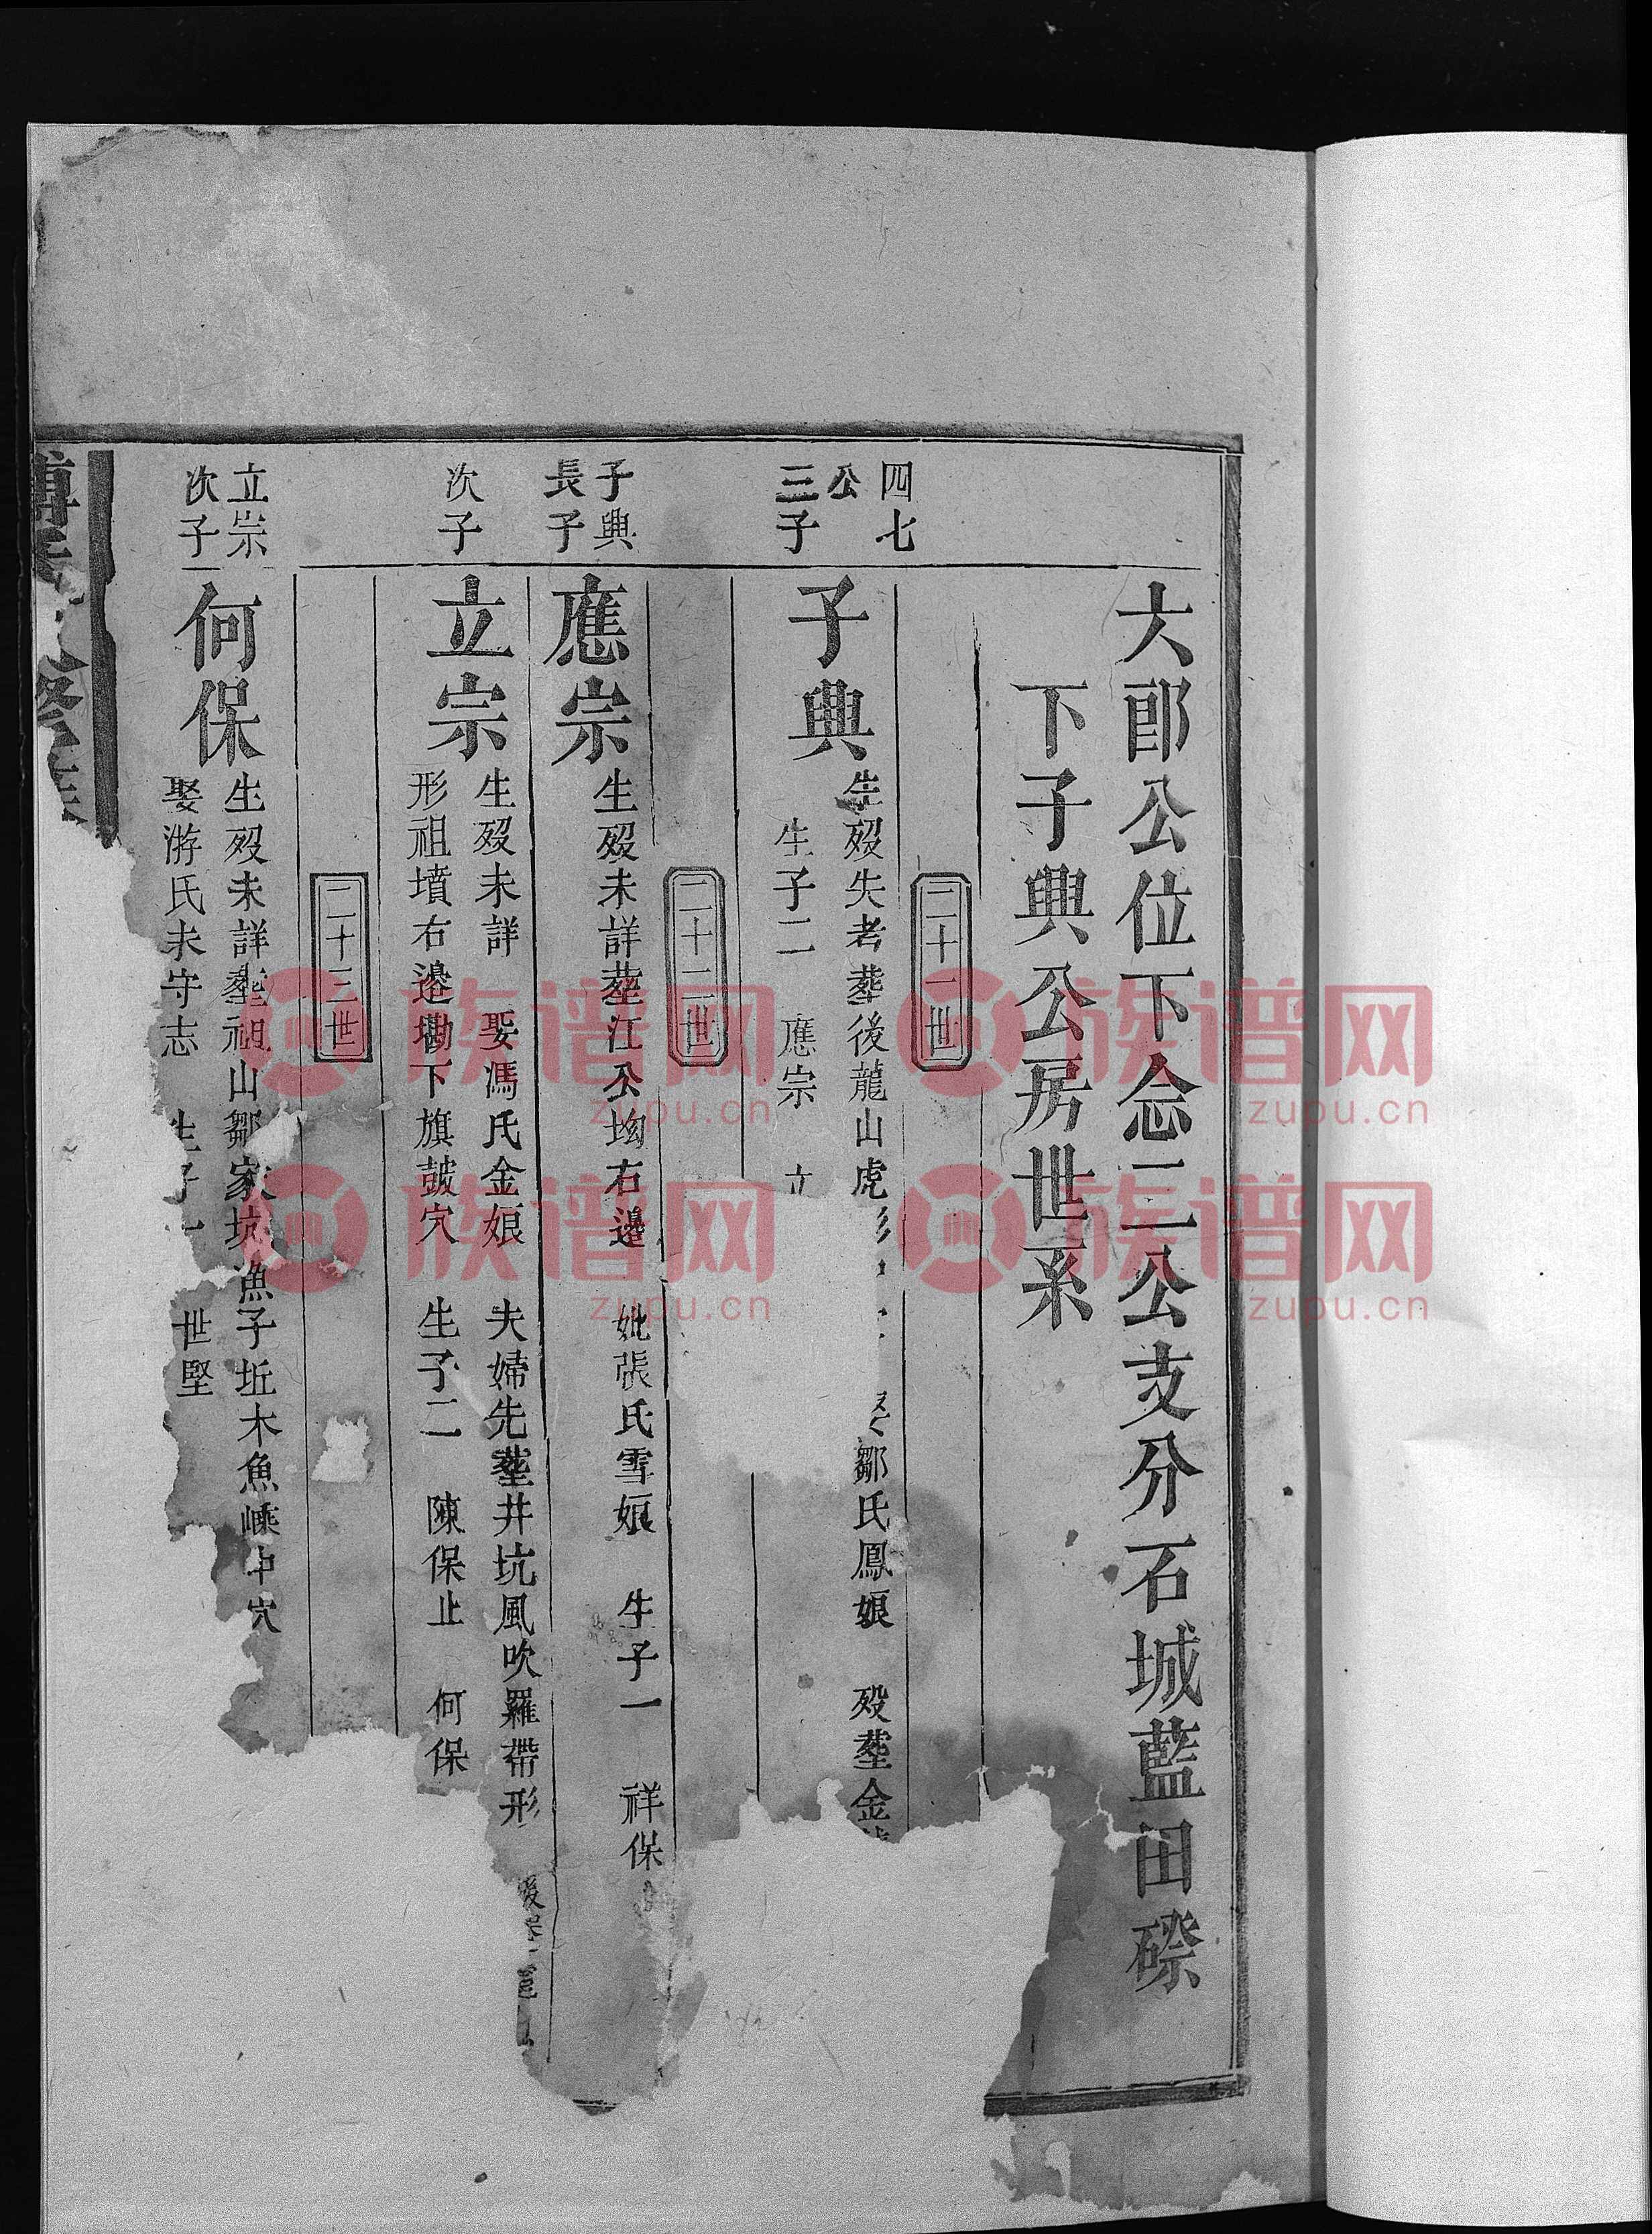 大郎公位下念三公支分石城藍田磜
下子興公房世系
二十一世
四七
公
三子
子興
生歿失考葬後龍山虎
鄒氏鳳娘 歿葬金
生子二 應宗 立
二十二世
子興
長子
應宗
生歿未詳葬江公坳右邊 妣張氏雪娘 生子一 祥保
次子
立宗
生歿未詳 娶馮氏金娘 夫婦先葬井坑風吹羅帶形
形祖墳右邊墈下旗鼓穴 生子二 陳保止 何保
二十三世
立宗
次子
何保
生歿未詳葬祖山鄒家坑漁子坵木魚嵊中穴
娶游氏未守志 生子一 世堅
族谱网
zupu.cn
族谱网
zupu.cn
族谱网
zupu.cn
族谱网
zupu.cn